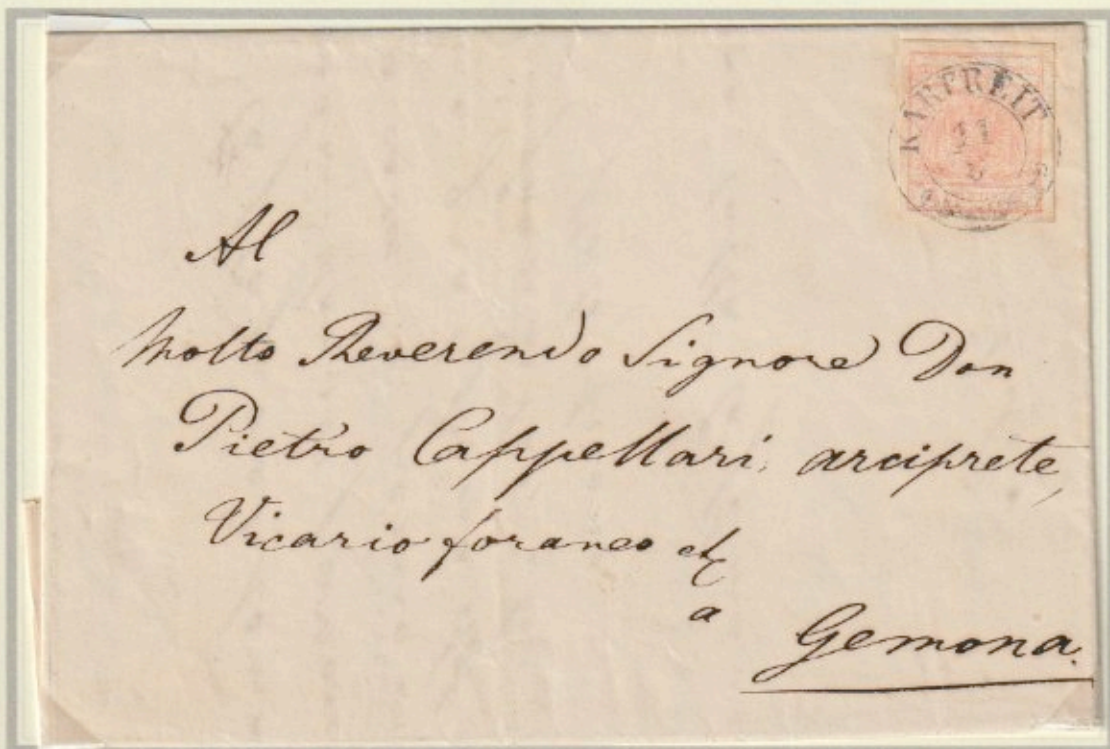 KARFREIT
11
Al
Molto Reverendo Signore Don
Pietro Cappellari, arciprete,
Vicario foraneo etc
a
Gemona.